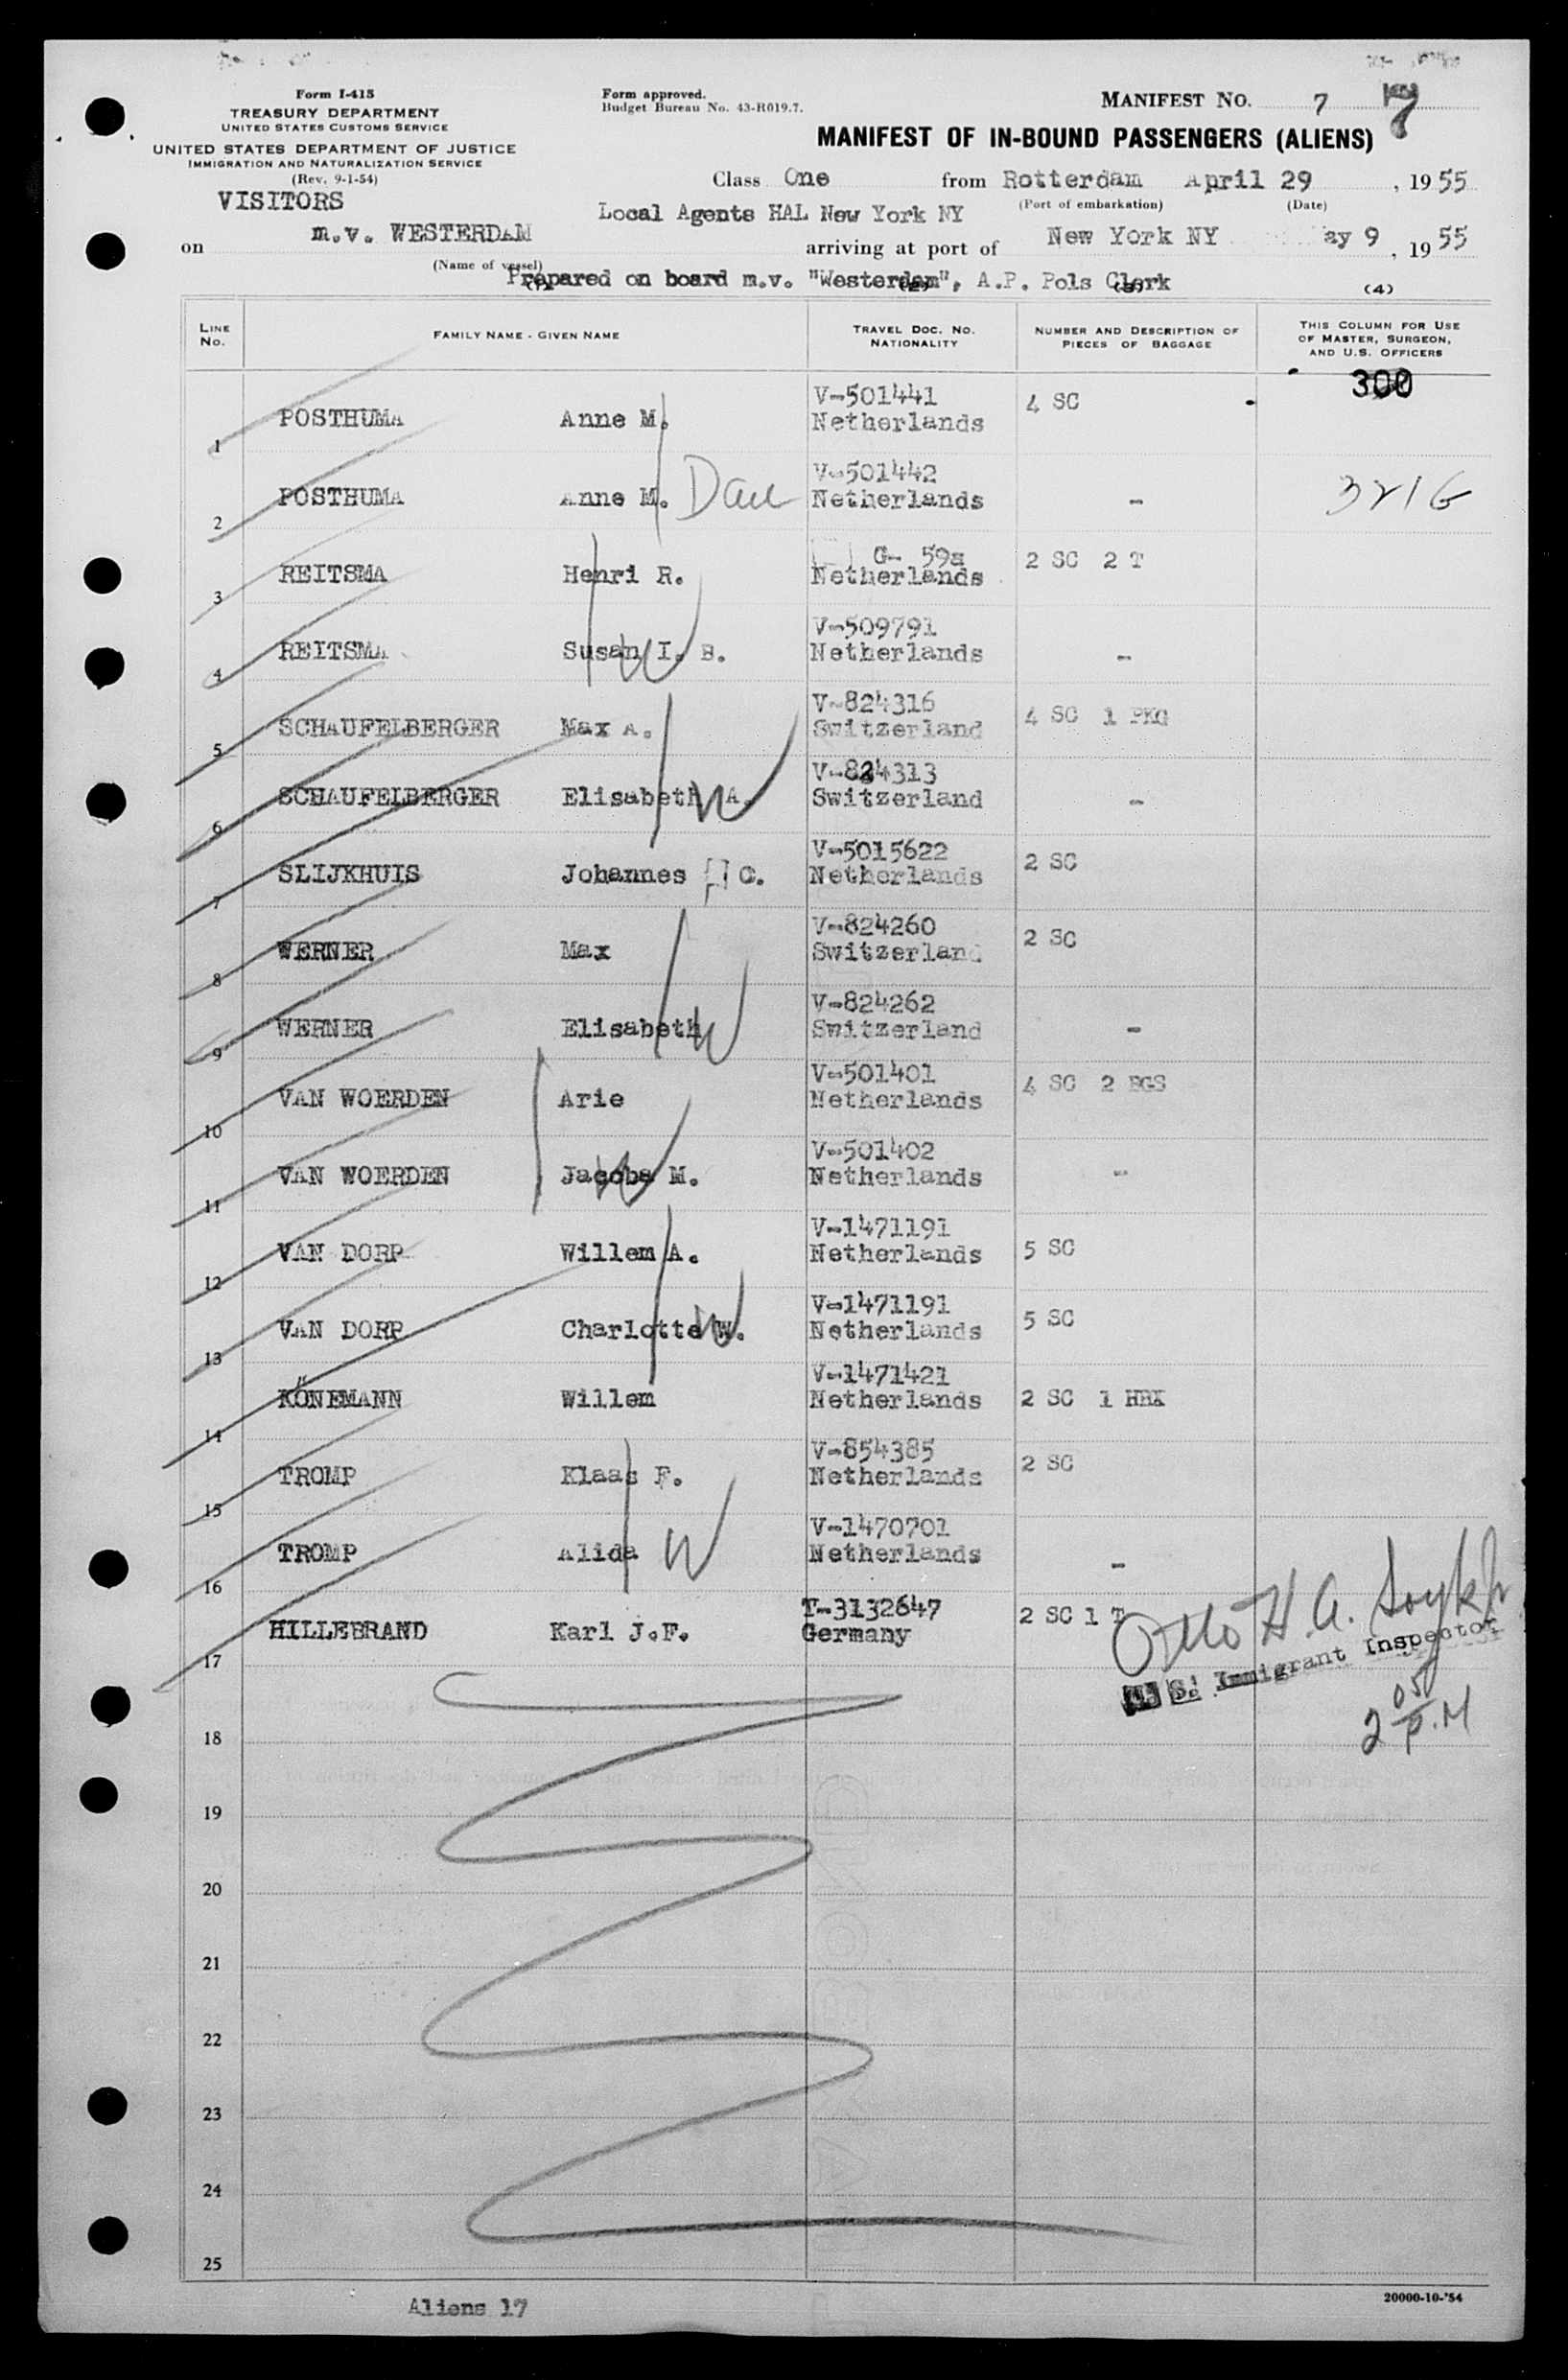 Form I-415
TREASURY DEPARTMENT
UNITED STATES CUSTOMS SERVICE
UNITED STATES DEPARTMENT OF JUSTICE
IMMIGRATION AND NATURALIZATION SERVICE
(Rev. 9-1-54)
VISITORS
Form approved.
Budget Bureau No. 43-R019.7.
MANIFEST NO. 7 7
MANIFEST OF IN-BOUND PASSENGERS (ALIENS)
Class One from Rotterdam April 29, 1955
(Port of embarkation) (Date)
Local Agents HAL New York NY
on m.v. WESTERDAM arriving at port of New York NY ay 9, 1955
(Name of vessel)
Prepared on board m.v. "Westerdam", A.P. Pols Clerk
(1) (2) (3) (4)
LINE NO. FAMILY NAME - GIVEN NAME TRAVEL DOC. NO. NATIONALITY NUMBER AND DESCRIPTION OF PIECES OF BAGGAGE THIS COLUMN FOR USE OF MASTER, SURGEON, AND U.S. OFFICERS
300
1 POSTHUMA Anne M. V-501441 Netherlands 4 SC
2 POSTHUMA Anne M. Dau V-501442 Netherlands - 321G
3 REITSMA Henri R. G- 59a Netherlands 2 SC 2 T
4 REITSMA Susan I. B. W V-509791 Netherlands -
5 SCHAUFELBERGER Max A. V-824316 Switzerland 4 SC 1 PKG
6 SCHAUFELBERGER Elisabeth A. W V-824313 Switzerland -
7 SLIJKHUIS Johannes C. V-5015622 Netherlands 2 SC
8 WERNER Max V-824260 Switzerland 2 SC
9 WERNER Elisabeth W V-824262 Switzerland -
10 VAN WOERDEN Arie V-501401 Netherlands 4 SC 2 BGS
11 VAN WOERDEN Jacoba M. W V-501402 Netherlands -
12 VAN DORP Willem A. V-1471191 Netherlands 5 SC
13 VAN DORP Charlotte W. W V-1471191 Netherlands 5 SC
14 KÖNEMANN Willem V-1471421 Netherlands 2 SC 1 HBX
15 TROMP Klaas F. V-854385 Netherlands 2 SC
16 TROMP Alida W V-1470701 Netherlands -
17 HILLEBRAND Karl J.F. T-3132647 Germany 2 SC 1 T
Otto H. A.
U. S. Immigrant Inspector
2 05 P.M
18
19
20
21
22
23
24
25
Aliens 17
20000-10-'54